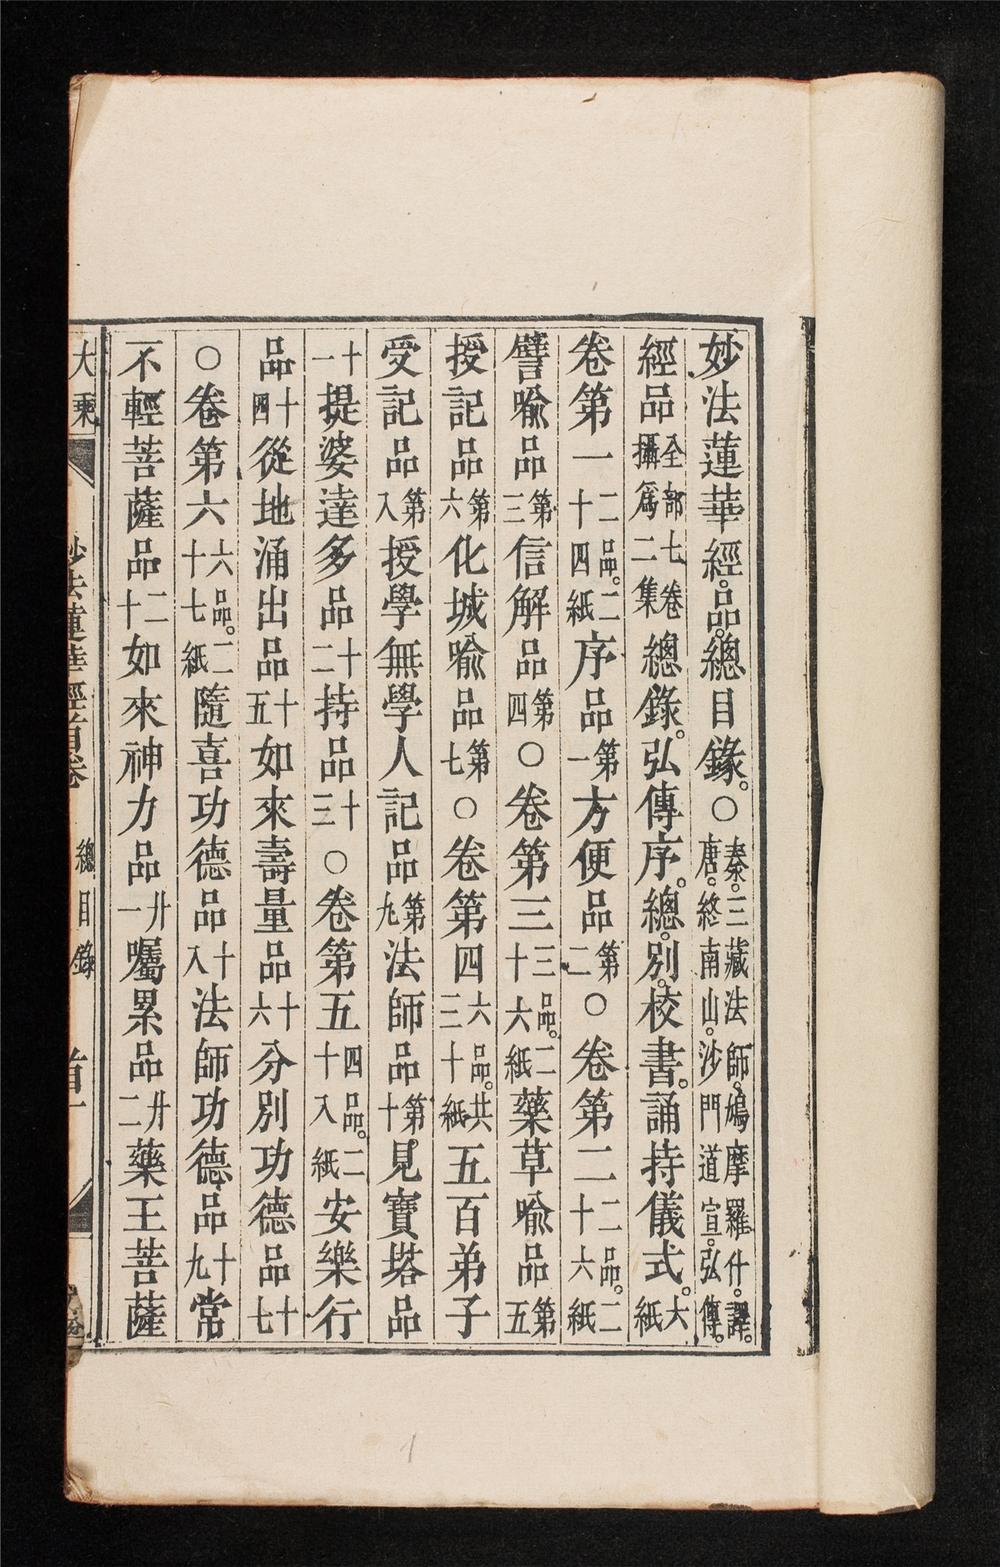 妙法蓮華經。品。總目錄。○秦。三藏法師。鳩摩羅什。譯。唐。終南山。沙門道宣。弘傳。
經品全部七卷攝爲二集總錄。弘傳序。總。別。校書。誦持儀式。六紙
卷第一二品。二十四紙序品第一方便品第二○卷第二二品。二十六紙
譬喻品第三信解品第四○卷第三三品。二十六紙藥草喻品第五
授記品第六化城喻品第七○卷第四六品。共三十紙五百弟子
受記品第八授學無學人記品第九法師品第十見寶塔品
十一提婆達多品十二持品十三○卷第五四品。二十八紙安樂行
品十四從地涌出品十五如來壽量品十六分別功德品十七
○卷第六六品。二十七紙隨喜功德品十八法師功德品十九常
不輕菩薩品二十如來神力品廿一囑累品廿二藥王菩薩
大乘 妙法蓮華經首卷 總目錄 首一